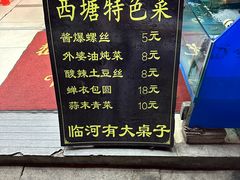 西塘特色菜
酱爆螺丝 5元
外婆油炖菜 8元
酸辣土豆丝 8元
蝉衣包圆 18元
蒜末青菜 10元
临河有大桌子